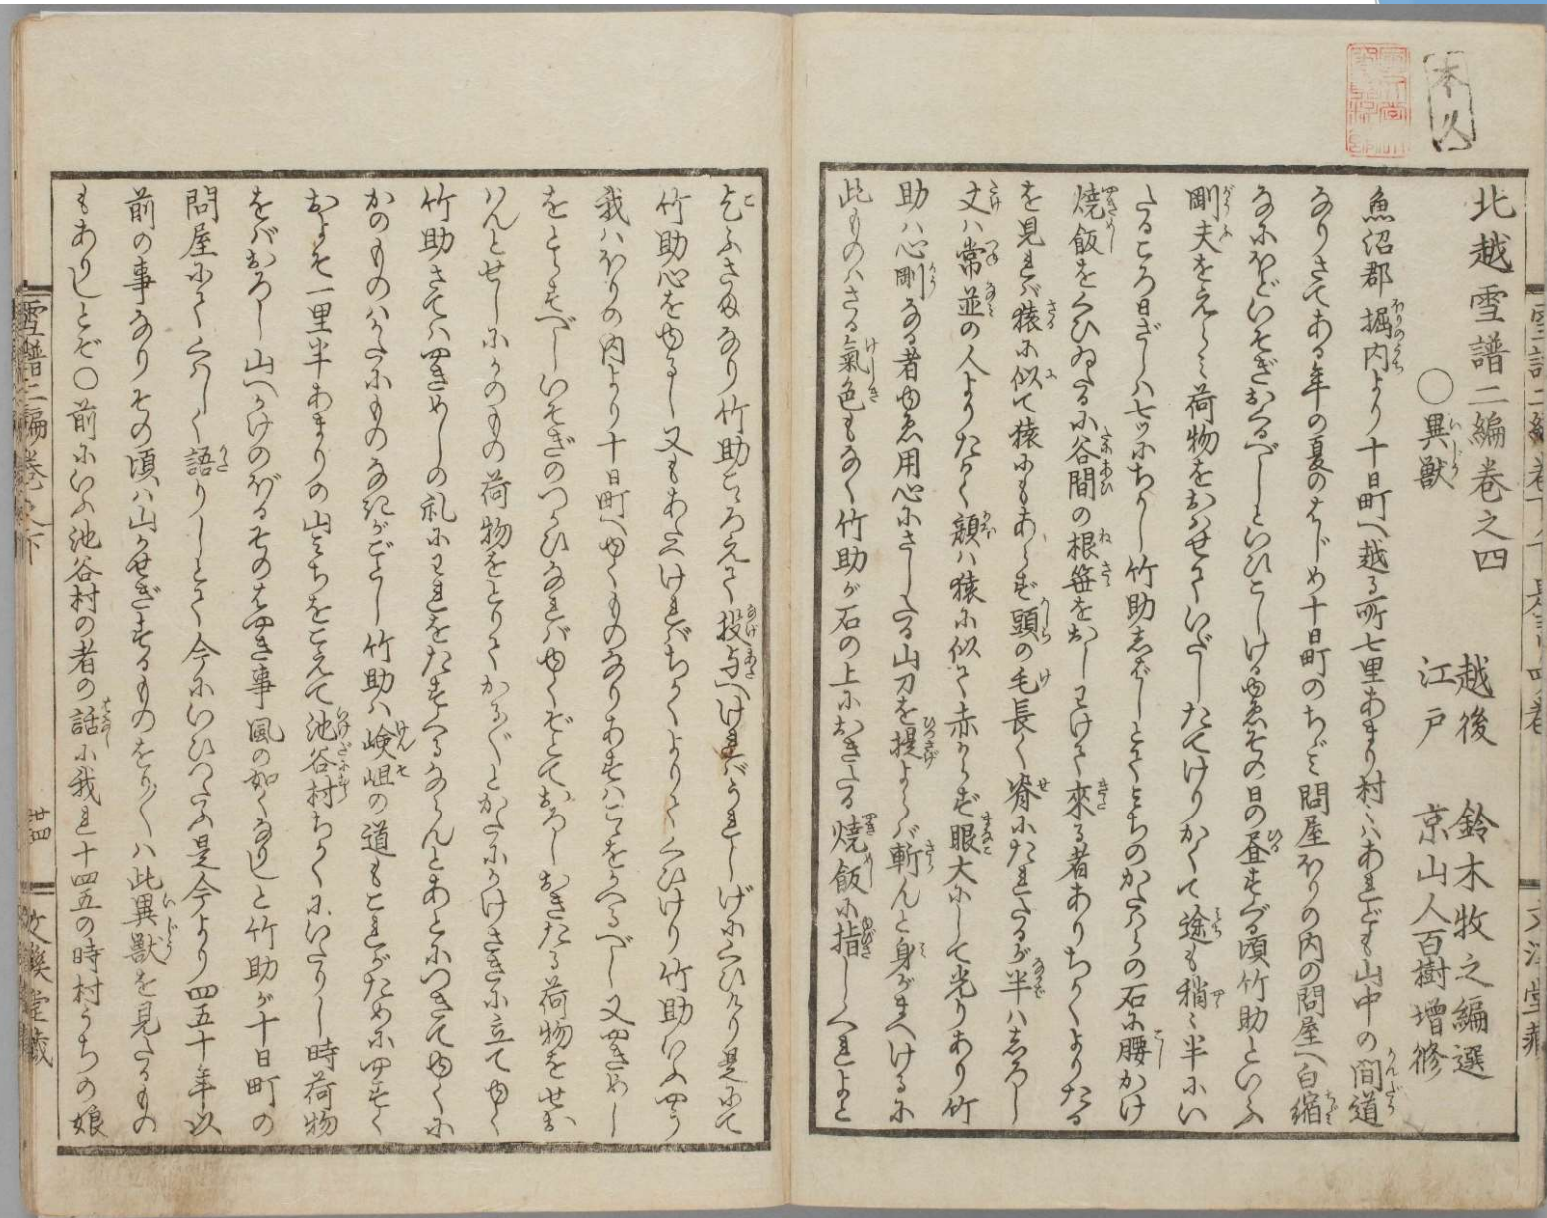 北越雪譜二編巻之四
越後　鈴木牧之編選
江戸　京山人百樹増修
○異獣
魚沼郡堀内より十日町へ越る所七里あまり村々はあれども山中の間道
なりさてある年の夏のはじめ十日町のちゞみ問屋ほりの内の問屋へ白縮
なにほどいそぎおくるべしといひこしけるゆゑその日の昼すぐる頃竹助といふ
剛夫をえらみ荷物をおはせていだしたてけりかくて途も稍々半にい
たるころ日ざしは七ツにちかし竹助しばしとてみちのかたはらの石に腰かけ
焼飯をくひゐたるに谷間の根笹をおしわけて来る者ありちかくよりたる
を見れば猿に似て猿にもあらず頭の毛長く脊にたれたるが半はしろし
丈は常並の人よりたかく顔は猿に似て赤からず眼大にして光りあり竹
助は心剛なる者ゆゑ用心にさしたる山刀を提よらば斬んと身がまへけるに
此ものはさる氣色もなく竹助が石の上におきたる焼飯に指しくれよと
乞ふさまなり竹助こゝろえて投与へければうれしげにくひけり是にて
竹助心をゆるし又もあたへければちかくよりてくひけり竹助いふやう
我はほりの内より十日町へゆくものなりあすはこゝをかへるべし又やきめし
をとらすべしいそぎのつかひなればゆくぞとておろしおきたる荷物をせお
はんとせしにかのもの荷物をとりてかる〴〵とかたにかけさきに立てゆく
竹助さてはやきめしの礼にわれをたすくるならんとあとにつきてゆくに
かのものはかたにものなきがごとし竹助は嶮岨の道もこれがためにやすく
およそ一里半あまりの山みちをこえて池谷村ちかくにいたりし時荷物
をばおろし山へかけのぼるそのはやき事風の如くなりしと竹助が十日町の
問屋にてくはしく語りしとて今にいひつたふ是今より四五十年以
前の事なりその頃は山かせぎするものをり〳〵は此異獣を見たるもの
もありしとぞ○前にいふ池谷村の者の話に我れ十四五の時村うちの娘
雪譜二編巻之下
廿四
文溪堂藏